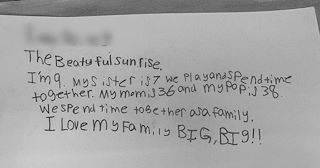 The Beatyful sunrise.
I'm 9. My sister is 7 we play and spend time
together. My mom is 36 and my pop is 38.
We spend time together as a family.
I Love my family BIG, BIg!!